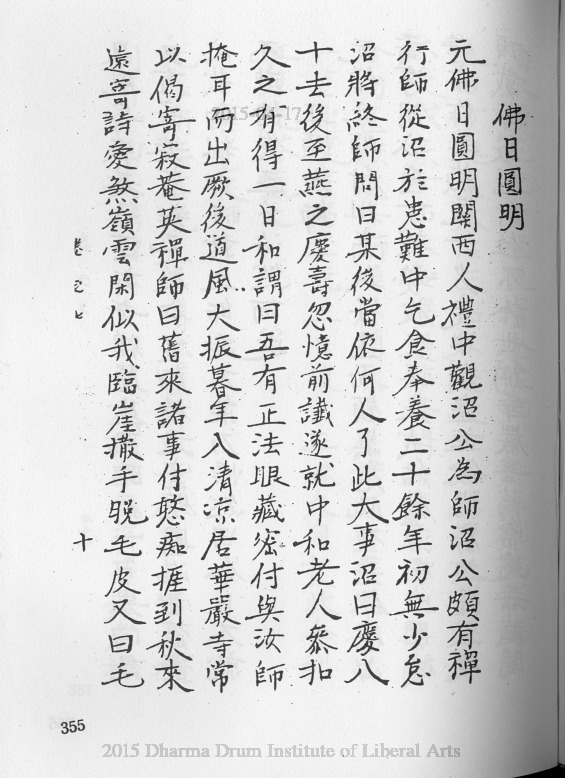 佛日圓明
元佛日圓明關西人禮中觀沼公為師沼公頗有禪
行師從沼於患難中乞食奉養二十餘年初無少怠
沼將終師問曰某後當依何人了此大事沼曰慶八
十去後至燕之慶壽忽憶前讖遂就中和老人叅扣
久之有得一日和謂曰吾有正法眼藏密付與汝師
掩耳而出厥後道風大振暮年入清凉居華嚴寺常
以偈寄寂菴英禪師曰舊來諸事付憨痴捱到秋來
遠寄詩愛煞嶺雲閑似我臨崖撒手脱毛皮又曰毛
卷之七
十
355
2015 Dharma Drum Institute of Liberal Arts